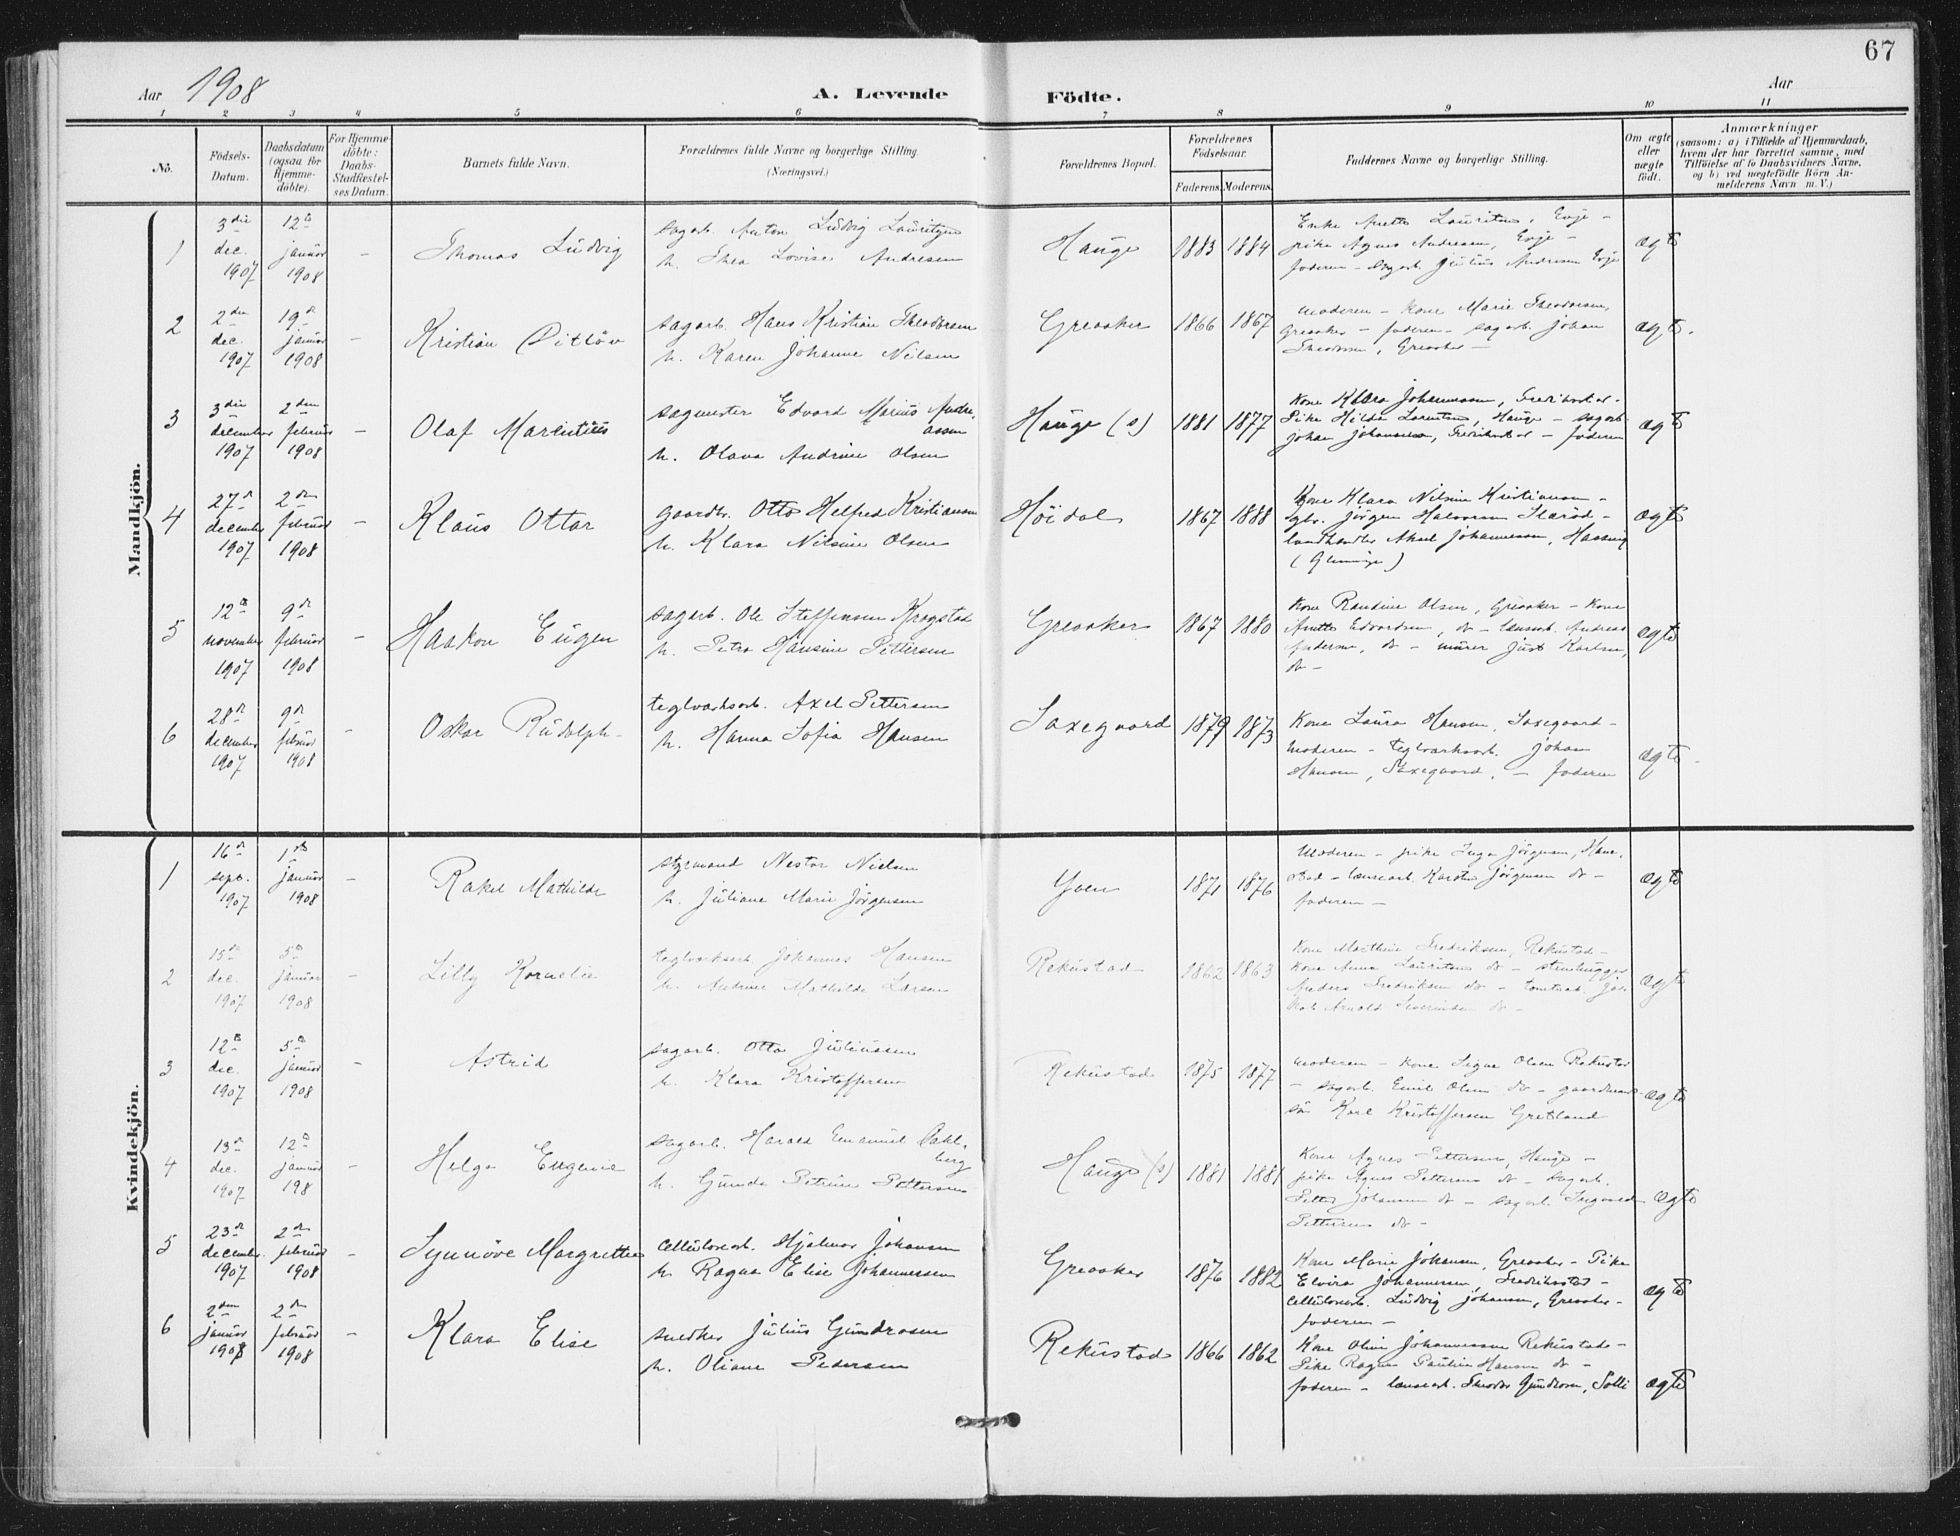 67
Aar 1908
A. Levende Födte.
Aar
1 2 3 4 5 6 7 8 9 10 11
No.
Födsels-Datum.
Daabsdatum (ogsaa for Hjemme-döbte).
For Hjemme-döbte: Daabs-Stadfæstel-ses Datum.
Barnets fulde Navn.
Forældrenes fulde Navne og borgerlige Stilling.
(Næringsvei.)
Forældrenes Bopæl.
Forældrenes Födselsaar.
Faderens. Moderens.
Faddernes Navne og borgerlige Stilling.
Om ægte eller uægte födt.
Anmærkninger
(saasom: a) i Tilfælde af Hjemmedaab,
hvem der har forrettet samme, med
Tilföielse af to Daabsvidners Navne,
og b) ved uægtefödte Börn An-
melderens Navn m. V.)
Mandkjön.
1
3die dec. 1907
12te januar 1908
-
Thomas Ludvig
sagarb. Anton Ludvig Lauritzen
h. Thea Lovise Andresen
Hauge
1883 1884
Enke Anette Lauritsen, Evje -
pike Agnes Andresen, Evje -
faderen - sagarb. Julius Andresen Evje
ægte
2
2den dec. 1907
19de januar 1908
-
Kristian Ditløv
sagarb. Hans Kristian Theodorsen
h. Karen Johanne Nilsen
Greaaker
1866 1867
moderen - kone Marie Theodorsen,
Greaaker - faderen - sagarb. Johan
Theodorsen, Greaaker -
ægte.
3
3die december 1907
2den februar 1908
-
Olaf Marentius
sagmester Edvard Marius Andreassen
h. Olava Andrine Olsen
Hauge (s)
1881 1877
Kone Klara Johannessen, Fredrikstad -
Pike Hilda Lauritsen, Hauge - sagarb.
Johan Johannessen, Fredrikstad - faderen
ægte
4
27de december 1907
2den februar 1908
-
Klaus Ottar
gaardbr. Otto Helfred Kristiansen
h. Klara Nilsine Olsen
Höidal
1867 1888
Kone Klara Nilsine Kristiansen -
gbr. Jørgen Halvorsen
landhandler Aksel Johannessen,
(Glemminge)
ægte
5
12te november 1907
9de februar 1908
-
Haakon Eugen
sagarb. Ole Steffensen Kragstad
h. Petra Hansine Pettersen
Greaaker
1867 1880
Kone Randine Olsen, Greaaker - Kone
Anette Edvardsen, do - Andreas
Andersen, do - murer Just Karlsen,
do -
ægte
6
28de december 1907
9de februar 1908
-
Oskar Rudolph
teglværksarb. Axel Pettersen
h. Hanna Sofia Hansen
Saxegaard
1879 1873
Kone Laura Hansen, Saxegaard -
moderen - teglværksarb. Johan
Hansen, Saxegaard. - faderen
ægte -
Kvindekjön.
1
16de sept. 1907
1ste januar 1908
-
Rakel Mathilde
styrmand Nestor Nielsen
h. Juliane Marie Jørgensen
Yven
1871 1876
Moderen - pike Inga Jørgensen,
stad - Karsten Jørgensen do -
faderen -
ægte
2
15de dec. 1907
5te januar 1908
-
Lilly Kornelie
teglverksarb Johannes Hansen
h. Andrine Mathilde Larsen
Rekustad
1862 1863
Kone Marthine Fredriksen, Rekustad -
Kone Anna Lauritsen do - stenhugger
Anders Fredriksen do - tomtearb. Jak-
Arnold Severinsen do -
ægte
3
12te dec. 1907
5te januar 1908
-
Astrid
sagarb. Otto Juliussen
h. Klara Kristoffersen
Rekustad
1875 1877
moderen - kone Signe Olsen Rekustad
- sagarb. Emil Olsen do - gaardmands-
søn Karl Kristoffersen Gretland
ægte
4
13de dec. 1907
12te januar 198
-
Helga Eugenie
sagarb. Harald Emanuel Dahlberg
h. Gunda Petrine Pettersen
Hauge (s)
1881 1881
Kone Agnes Pettersen, Hauge -
pike Agnes Pettersen do - sagarb.
Petter Johansen do - sagarb. Ingvald
Pettersen do -
ægte
5
23de december 1907
2den februar 1908
-
Synnöve Margrethe
Cellulosearb. Hjalmar Johansen
h. Ragna Elise Johannessen
Greaaker
1876 1882
Kone Marie Johansen, Greaaker - Pike
Elvira Johannessen, Fredrikstad -
Cellulosearb. Ludvig Johansen, Greaaker -
faderen -
ægte
6
2den januar 1908
2den februar 1908
-
Klara Elise
snedker Julius Gundrosen
h. Oliane Pedersen
Rekustad
1866 1862
Kone Oline Johannessen Rekustad -
Pike Ragna Pauline Hansen do -
faderen - Theodor Gundrosen, Solli
ægte